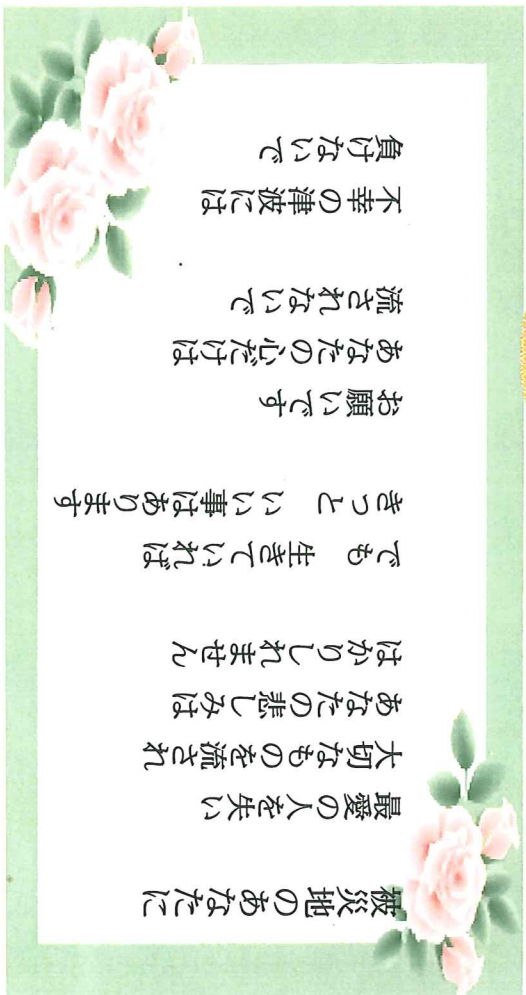 被災地のあなたに
最愛の人を失い
大切なものを流され
あなたの悲しみは
はかりしれません
でも　生きていれば
きっと　いい事はあります
お願いです
あなたの心だけは
流されないで
不幸の津波には
負けないで